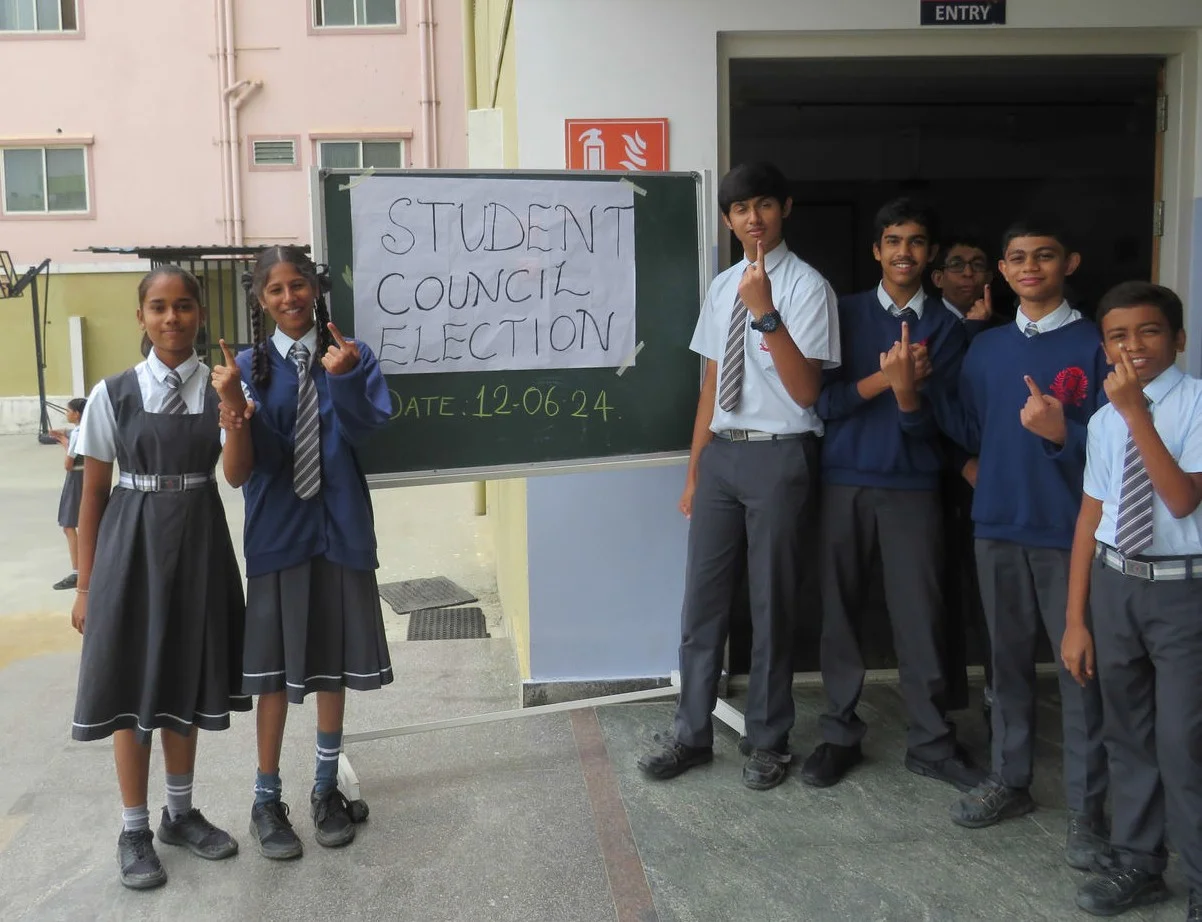 ENTRY
STUDENT
COUNCIL
ELECTION
DATE: 12-06-24.